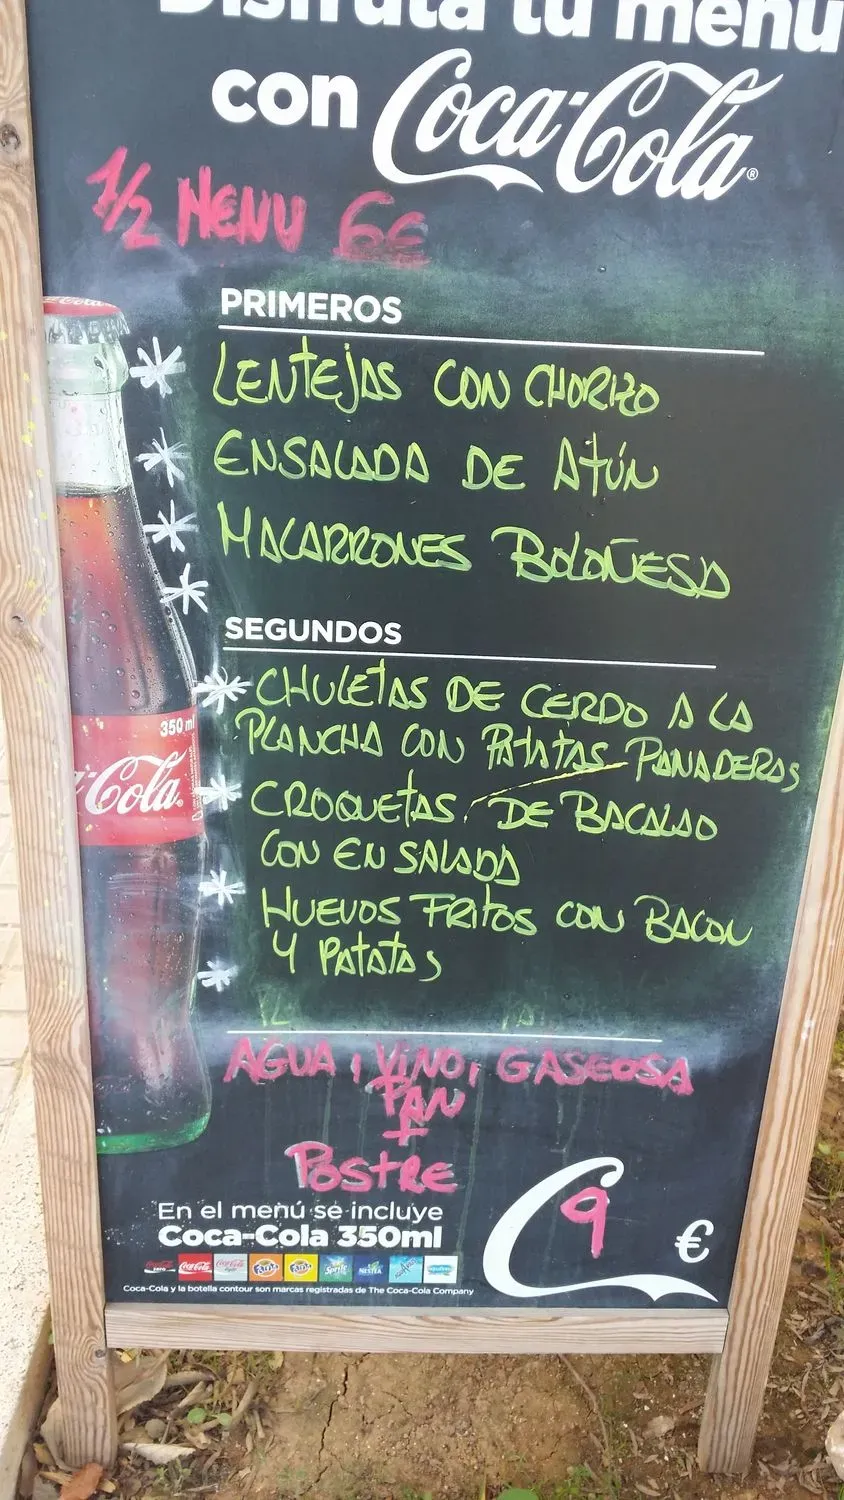 Disfruta tu menú
con Coca-Cola®
1/2 MENU 6€
PRIMEROS
LENTEJAS CON CHORIZO
ENSALADA DE ATÚN
MACARRONES BOLOÑESA
SEGUNDOS
CHULETAS DE CERDO A LA
PLANCHA CON PATATAS PANADERAS
CROQUETAS DE BACALAO
CON ENSALADA
HUEVOS FRITOS CON BACON
Y PATATAS
350 ml
Coca-Cola
AGUA, VINO, GASEOSA
PAN
+
POSTRE
En el menú se incluye
Coca-Cola 350ml
9 €
Coca-Cola Fanta Fanta Sprite NESTEA
Coca-Cola y la botella contour son marcas registradas de The Coca-Cola Company